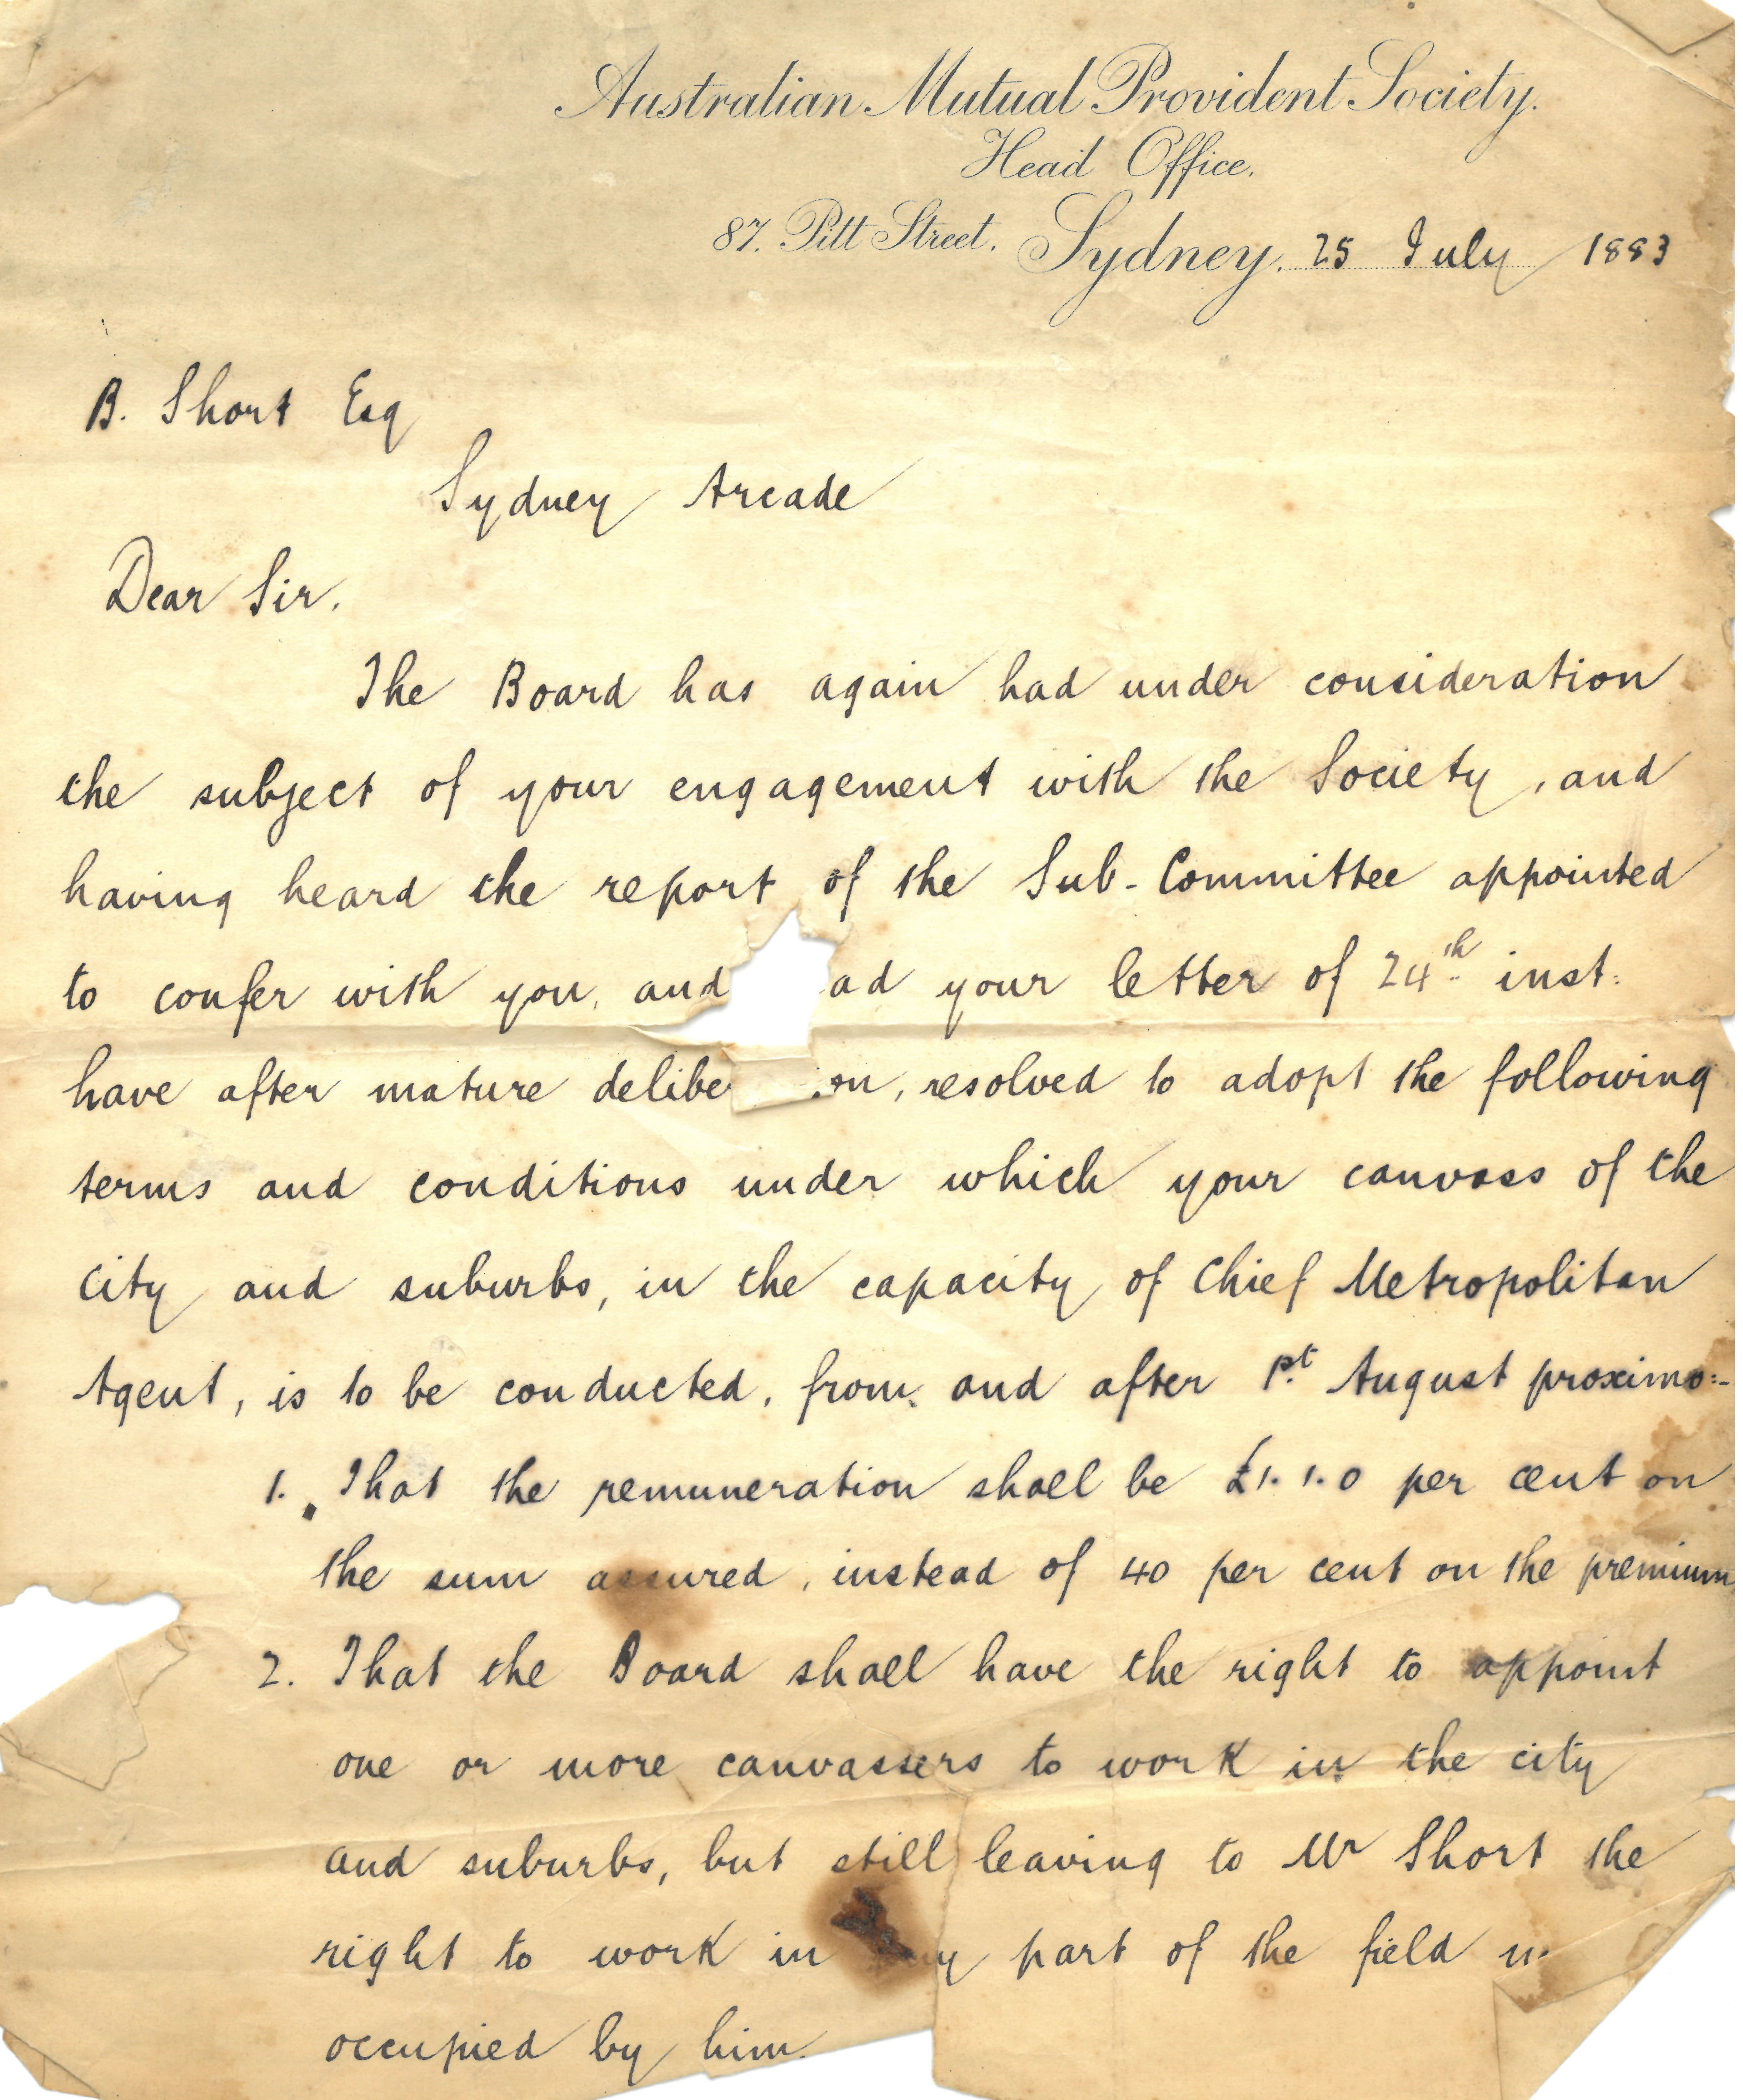 Australian Mutual Provident Society.
Head Office.
87. Pitt Street. Sydney. 25 July 1883
B. Short Esq
Sydney Arcade
Dear Sir.
The Board has again had under consideration
the subject of your engagement with the Society, and
having heard the report of the Sub-Committee appointed
to confer with you, and ad your letter of 24th inst:
have after mature delibe on, resolved to adopt the following
terms and conditions under which your canvass of the
City and suburbs, in the capacity of Chief Metropolitan
Agent, is to be conducted, from and after 1st August proximo:-
1. That the remuneration shall be £1.1.0 per cent on
the sum assured, instead of 40 per cent on the premium
2. That the Board shall have the right to appoint
one or more canvassers to work in the city
and suburbs, but still leaving to Mr Short the
right to work in any part of the field
occupied by him.